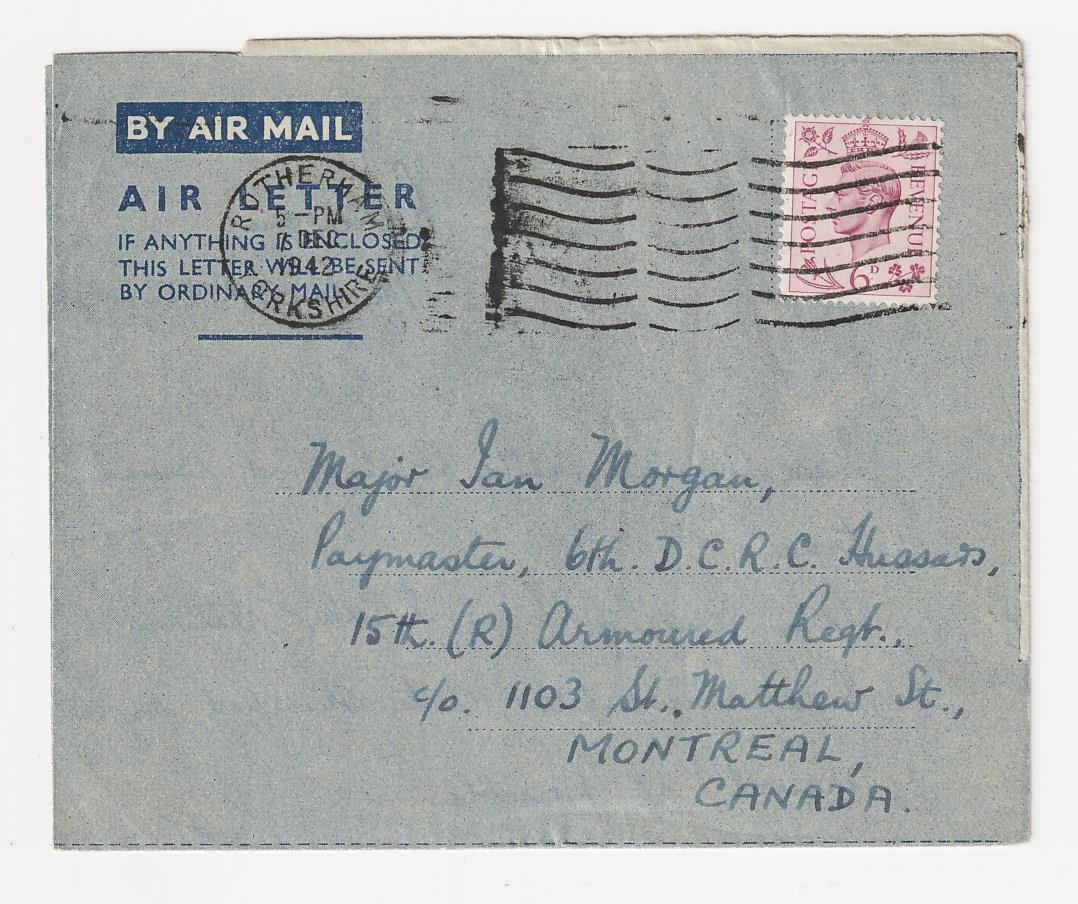 BY AIR MAIL
AIR LETTER
IF ANYTHING IS ENCLOSED
THIS LETTER WILL BE SENT
BY ORDINARY MAIL
ROTHERHAM
5 - PM
7 DEC
1942
YORKSHIRE
POSTAGE REVENUE
6D
Major Ian Morgan,
Paymaster, 6th. D.C.R.C. Hussars,
15th. (R) Armoured Regt.,
c/o. 1103 St. Matthew St.,
MONTREAL,
CANADA.